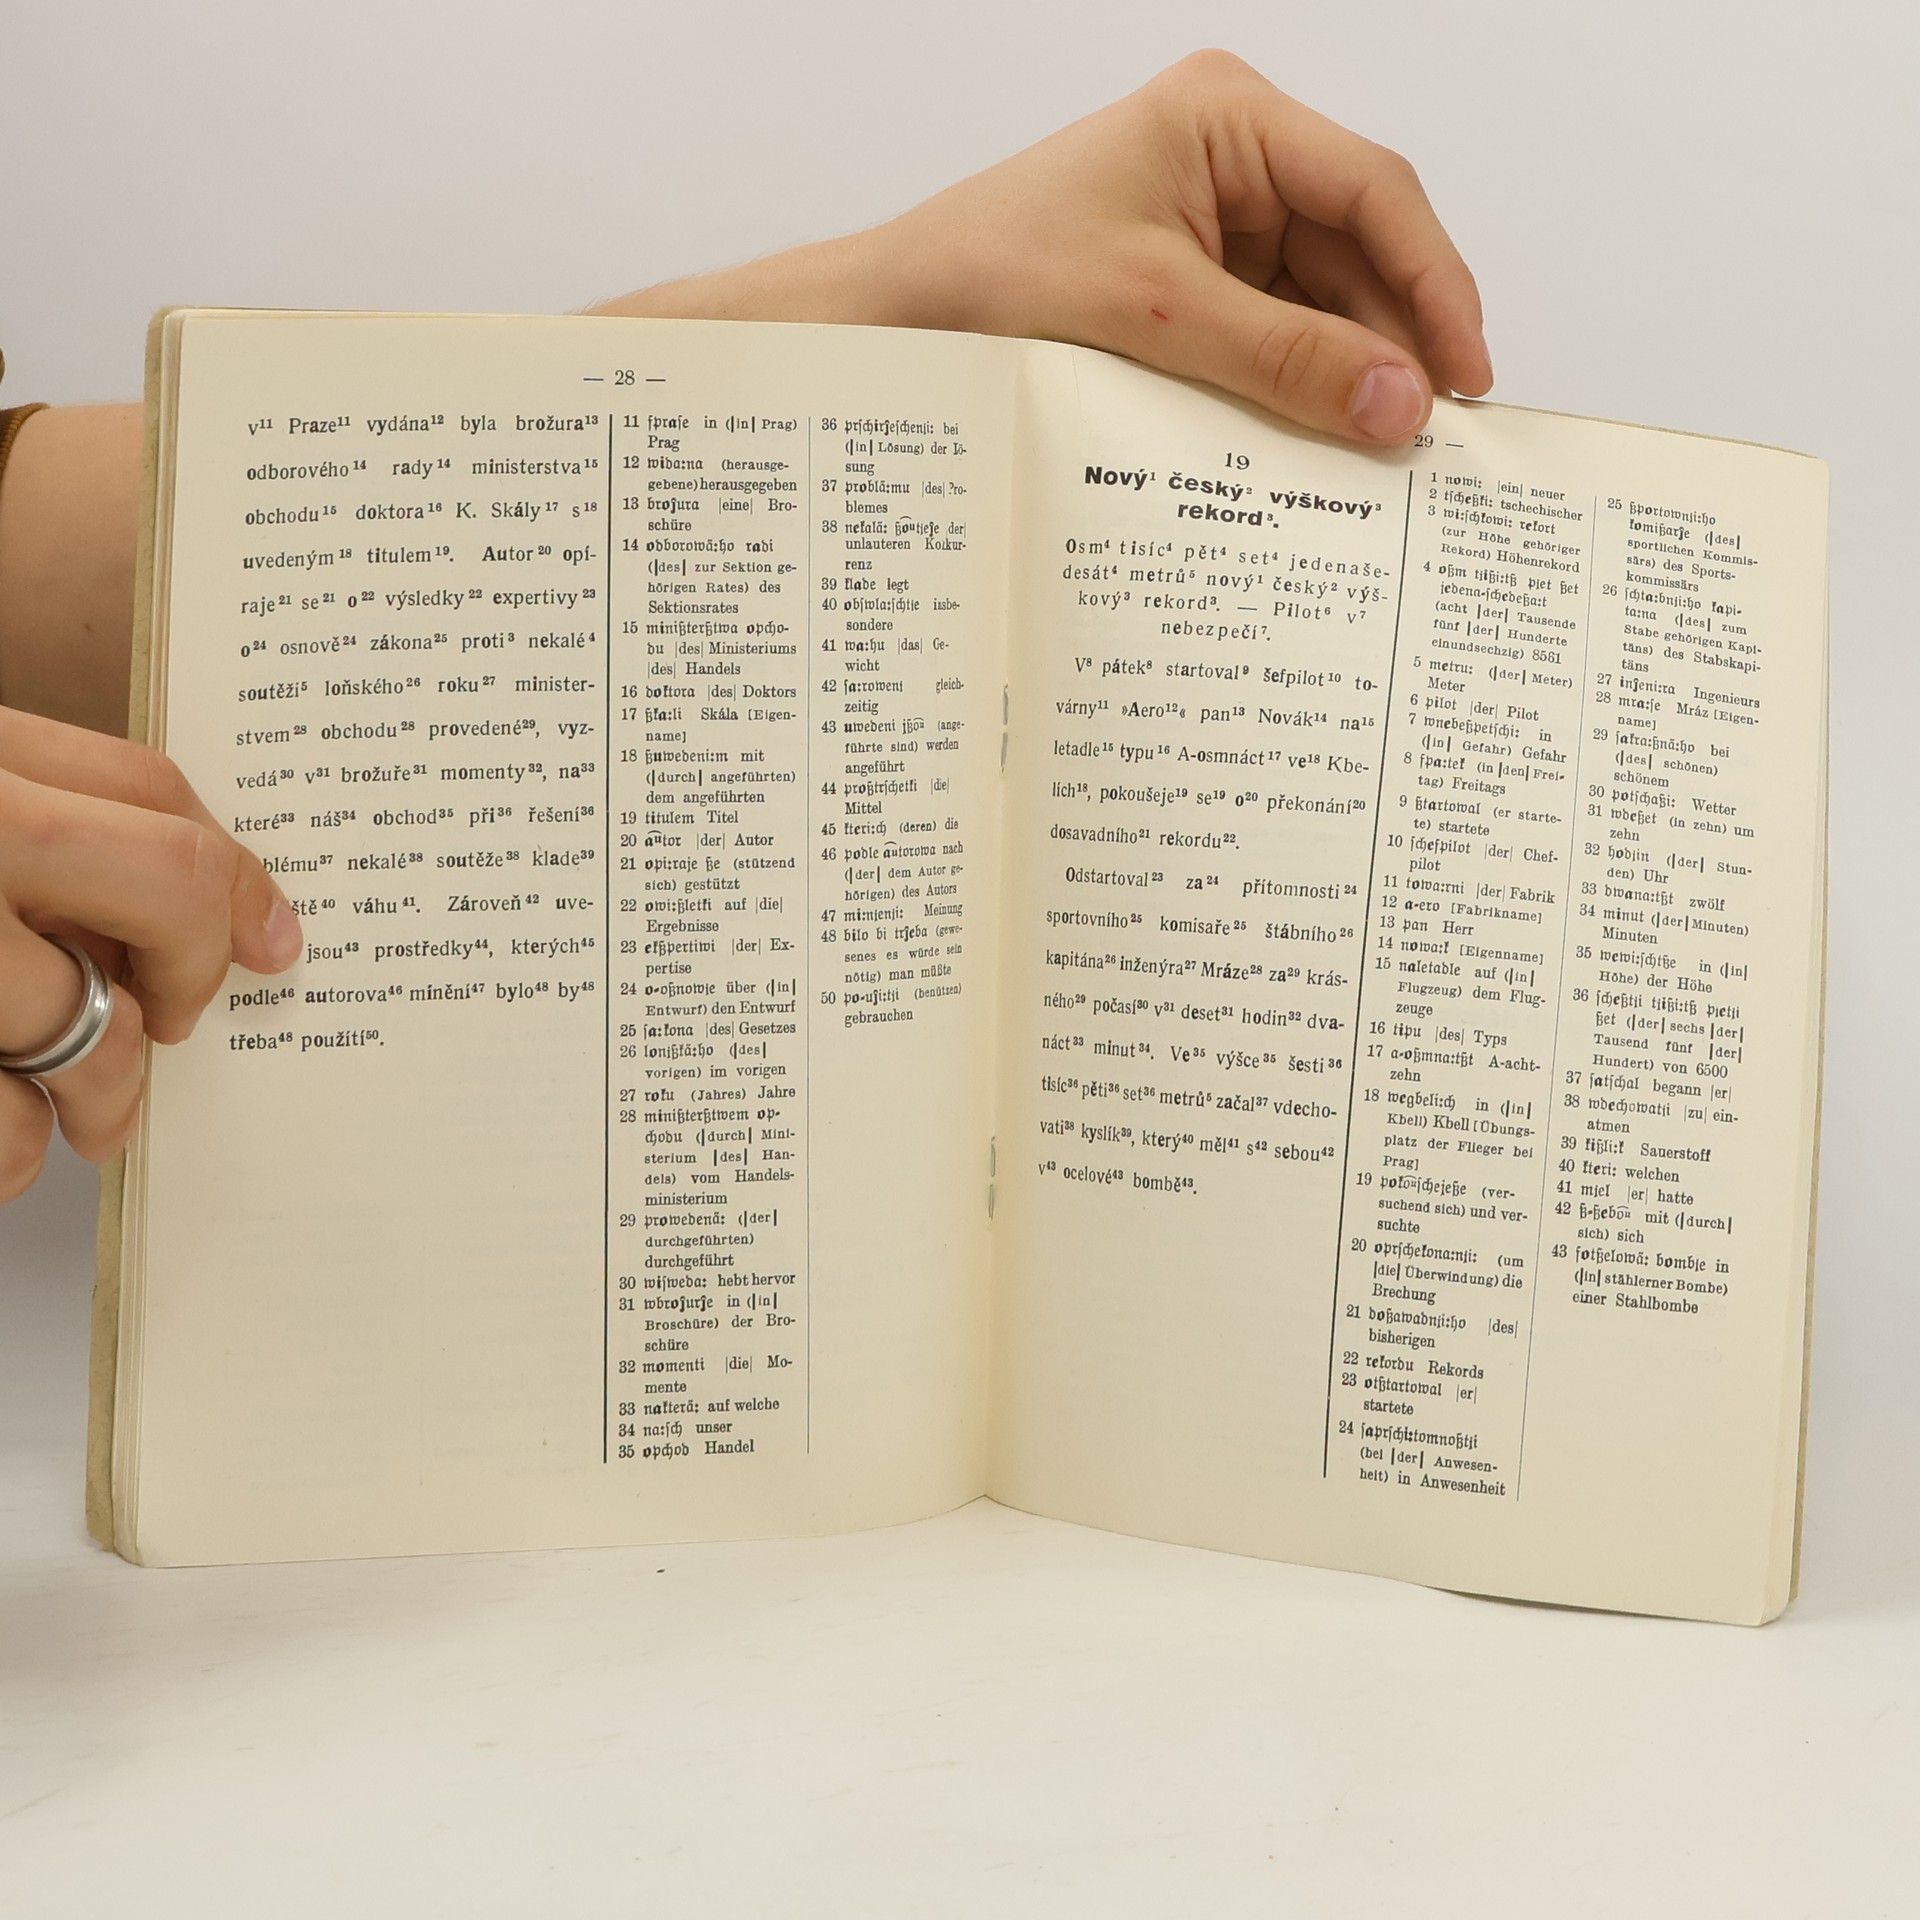 — 28 —
v¹¹ Praze¹¹ vydána¹² byla brožura¹³
odborového¹⁴ rady¹⁴ ministerstva¹⁵
obchodu¹⁵ doktora¹⁶ K. Skály¹⁷ s¹⁸
uvedeným¹⁸ titulem¹⁹. Autor²⁰ opí-
raje²¹ se²¹ o²² výsledky²² expertivy²³
o²⁴ osnově²⁴ zákona²⁵ proti³ nekalé⁴
soutěži⁵ loňského²⁶ roku²⁷ minister-
stvem²⁸ obchodu²⁸ provedené²⁹, vyz-
vedá³⁰ v³¹ brožuře³¹ momenty³², na³³
které³³ náš³⁴ obchod³⁵ při³⁶ řešení³⁶
blému³⁷ nekalé³⁸ soutěže³⁸ klade³⁹
ště⁴⁰ váhu⁴¹. Zároveň⁴² uve-
jsou⁴³ prostředky⁴⁴, kterých⁴⁵
podle⁴⁶ autorova⁴⁶ mínění⁴⁷ bylo⁴⁸ by⁴⁸
třeba⁴⁸ použítí⁵⁰.
11 ſpraſe in (|in| Prag)
Prag
12 wida:na (herausge-
gebene) herausgegeben
13 broĵura |eine| Bro-
schüre
14 odborowä:ho radi
(|des| zur Sektion ge-
hörigen Rates) des
Sektionsrates
15 minißterßtwa opcho-
bu |des| Ministeriums
|des| Handels
16 doktora |des| Doktors
17 ßka:li Skála [Eigen-
name]
18 ßuwedeni:m mit
(|durch| angeführten)
dem angeführten
19 titulem Titel
20 autor |der| Autor
21 opi:raje ße (stützend
sich) gestützt
22 owi:ßletki auf |die|
Ergebnisse
23 ekßpertiwi |der| Ex-
pertise
24 o-oßnowje über (|in|
Entwurf) den Entwurf
25 ſa:kona |des| Gesetzes
26 lonjßkä:ho (|des|
vorigen) im vorigen
27 roku (Jahres) Jahre
28 minißterßtwem op-
chodu (|durch| Mini-
sterium |des| Han-
dels) vom Handels-
ministerium
29 prowedenä: (|der|
durchgeführten)
durchgeführt
30 wiſweda: hebt hervor
31 wbroĵurje in (|in|
Broschüre) der Bro-
schüre
32 momenti |die| Mo-
mente
33 nakterä: auf welche
34 na:ſch unser
35 opchod Handel
36 prſchirĵeſchenji: bei
(|in| Lösung) der Lö-
sung
37 problä:mu |des| Pro-
blemes
38 nekalä: ßoutjeĵe |der|
unlauteren Konkur-
renz
39 klade legt
40 obſwla:ſchtje insbe-
sondere
41 wa:hu |das| Ge-
wicht
42 ſa:rowenj gleich-
zeitig
43 uwedeni jßou (ange-
führte sind) werden
angeführt
44 proßtrſchetki |die|
Mittel
45 kteri:ch (deren) die
46 podle autorowa nach
(|der| dem Autor ge-
hörigen) des Autors
47 mi:njenji: Meinung
48 bilo bi trĵeba (gewe-
senes es würde sein
nötig) man müßte
50 po-uĵi:tji (benützen)
gebrauchen
29 —
19
Nový¹ český² výškový³
rekord³.
Osm⁴ tisíc⁴ pět⁴ set⁴ jedenaše-
desát⁴ metrů⁵ nový¹ český² výš-
kový³ rekord³. — Pilot⁶ v⁷
nebezpečí⁷.
V⁸ pátek⁸ startoval⁹ šefpilot¹⁰ to-
várny¹¹ »Aero¹²« pan¹³ Novák¹⁴ na¹⁵
letadle¹⁵ typu¹⁶ A-osmnáct¹⁷ ve¹⁸ Kbe-
lích¹⁸, pokoušeje¹⁹ se¹⁹ o²⁰ překonání²⁰
dosavadního²¹ rekordu²².
Odstartoval²³ za²⁴ přítomnosti²⁴
sportovního²⁵ komisaře²⁵ štábního²⁶
kapitána²⁶ inženýra²⁷ Mráze²⁸ za²⁹ krás-
ného²⁹ počasí³⁰ v³¹ deset³¹ hodin³² dva-
náct³³ minut³⁴. Ve³⁵ výšce³⁵ šesti³⁶
tisíc³⁶ pěti³⁶ set³⁶ metrů⁵ začal³⁷ vdecho-
vati³⁸ kyslík³⁹, který⁴⁰ měl⁴¹ s⁴² sebou⁴²
v⁴³ ocelové⁴³ bombě⁴³.
1 nowi: |ein| neuer
2 tſcheßki: tschechischer
3 wi:ſchkowi: rekort
(zur Höhe gehöriger
Rekord) Höhenrekord
4 oßm tjißi:tß pjet ßet
jedena-ſchedeßa:t
(acht |der| Tausende
fünf |der| Hunderte
einundsechzig) 8561
5 metru: (|der| Meter)
Meter
6 pilot |der| Pilot
7 wnebeßpetſchi: in
(|in| Gefahr) Gefahr
8 fpa:tek (in |den| Frei-
tag) Freitags
9 ßtartowal (er starte-
te) startete
10 ſchefpilot |der| Chef-
pilot
11 towa:rni |der| Fabrik
12 a-ero [Fabrikname]
13 pan Herr
14 nowa:k [Eigenname]
15 naletadle auf (|in|
Flugzeug) dem Flug-
zeuge
16 tipu |des| Typs
17 a-oßmna:tßt A-acht-
zehn
18 wegbeli:ch in (|in|
Kbell) Kbell [Übungs-
platz der Flieger bei
Prag]
19 pokouſchejeße (ver-
suchend sich) und ver-
suchte
20 oprſchekona:nji: (um
|die| Überwindung) die
Brechung
21 doßawadnji:ho |des|
bisherigen
22 rekordu Rekords
23 otßtartowal |er|
startete
24 ſaprſchi:tomnoßtji
(bei |der| Anwesen-
heit) in Anwesenheit
25 ßportownji:ho
komißarĵe (|des|
sportlichen Kommis-
särs) des Sports-
kommissärs
26 ſchta:bnji:ho kapi-
ta:na (|des| zum
Stabe gehörigen Kapi-
täns) des Stabskapi-
täns
27 inĵeni:ra Ingenieurs
28 mra:ſe Mráz [Eigen-
name]
29 ſakra:ßnä:ho bei
(|des| schönen)
schönem
30 potſchaßi: Wetter
31 wdeßet (in zehn) um
zehn
32 hodjin (|der| Stun-
den) Uhr
33 dwana:tßt zwölf
34 minut (|der| Minuten)
Minuten
35 wewi:ſchtße in (|in|
Höhe) der Höhe
36 ſcheßtji tjißi:tß pjetji
ßet (|der| sechs |der|
Tausend fünf |der|
Hundert) von 6500
37 ſatſchal begann |er|
38 wdechowatji |zu| ein-
atmen
39 kißli:k Sauerstoff
40 kteri: welchen
41 mjel |er| hatte
42 ß-ßebou mit (|durch|
sich) sich
43 fotßelowä: bombje in
(|in| stählerner Bombe)
einer Stahlbombe